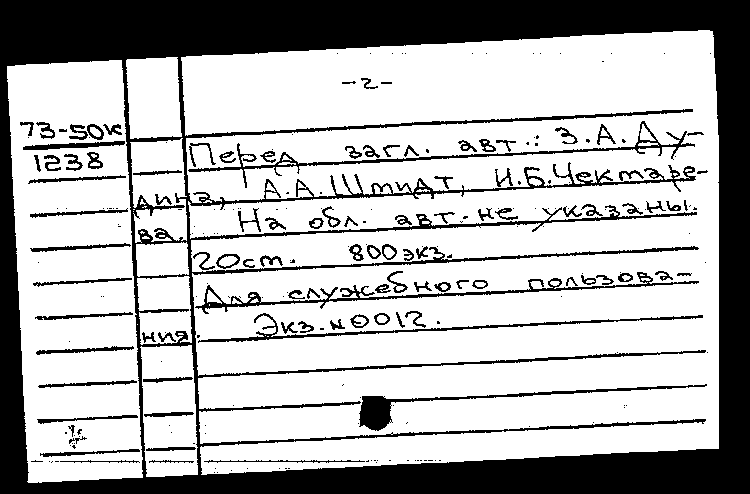 -2-
73-50к
1238
Перед загл. авт.: З.А.Ду-
дина, А.А.Шмидт, И.Б.Чектаре-
ва. На обл. авт. не указаны.
20ст. 800экз.
Для служебного пользова-
ния. Экз.№0012.